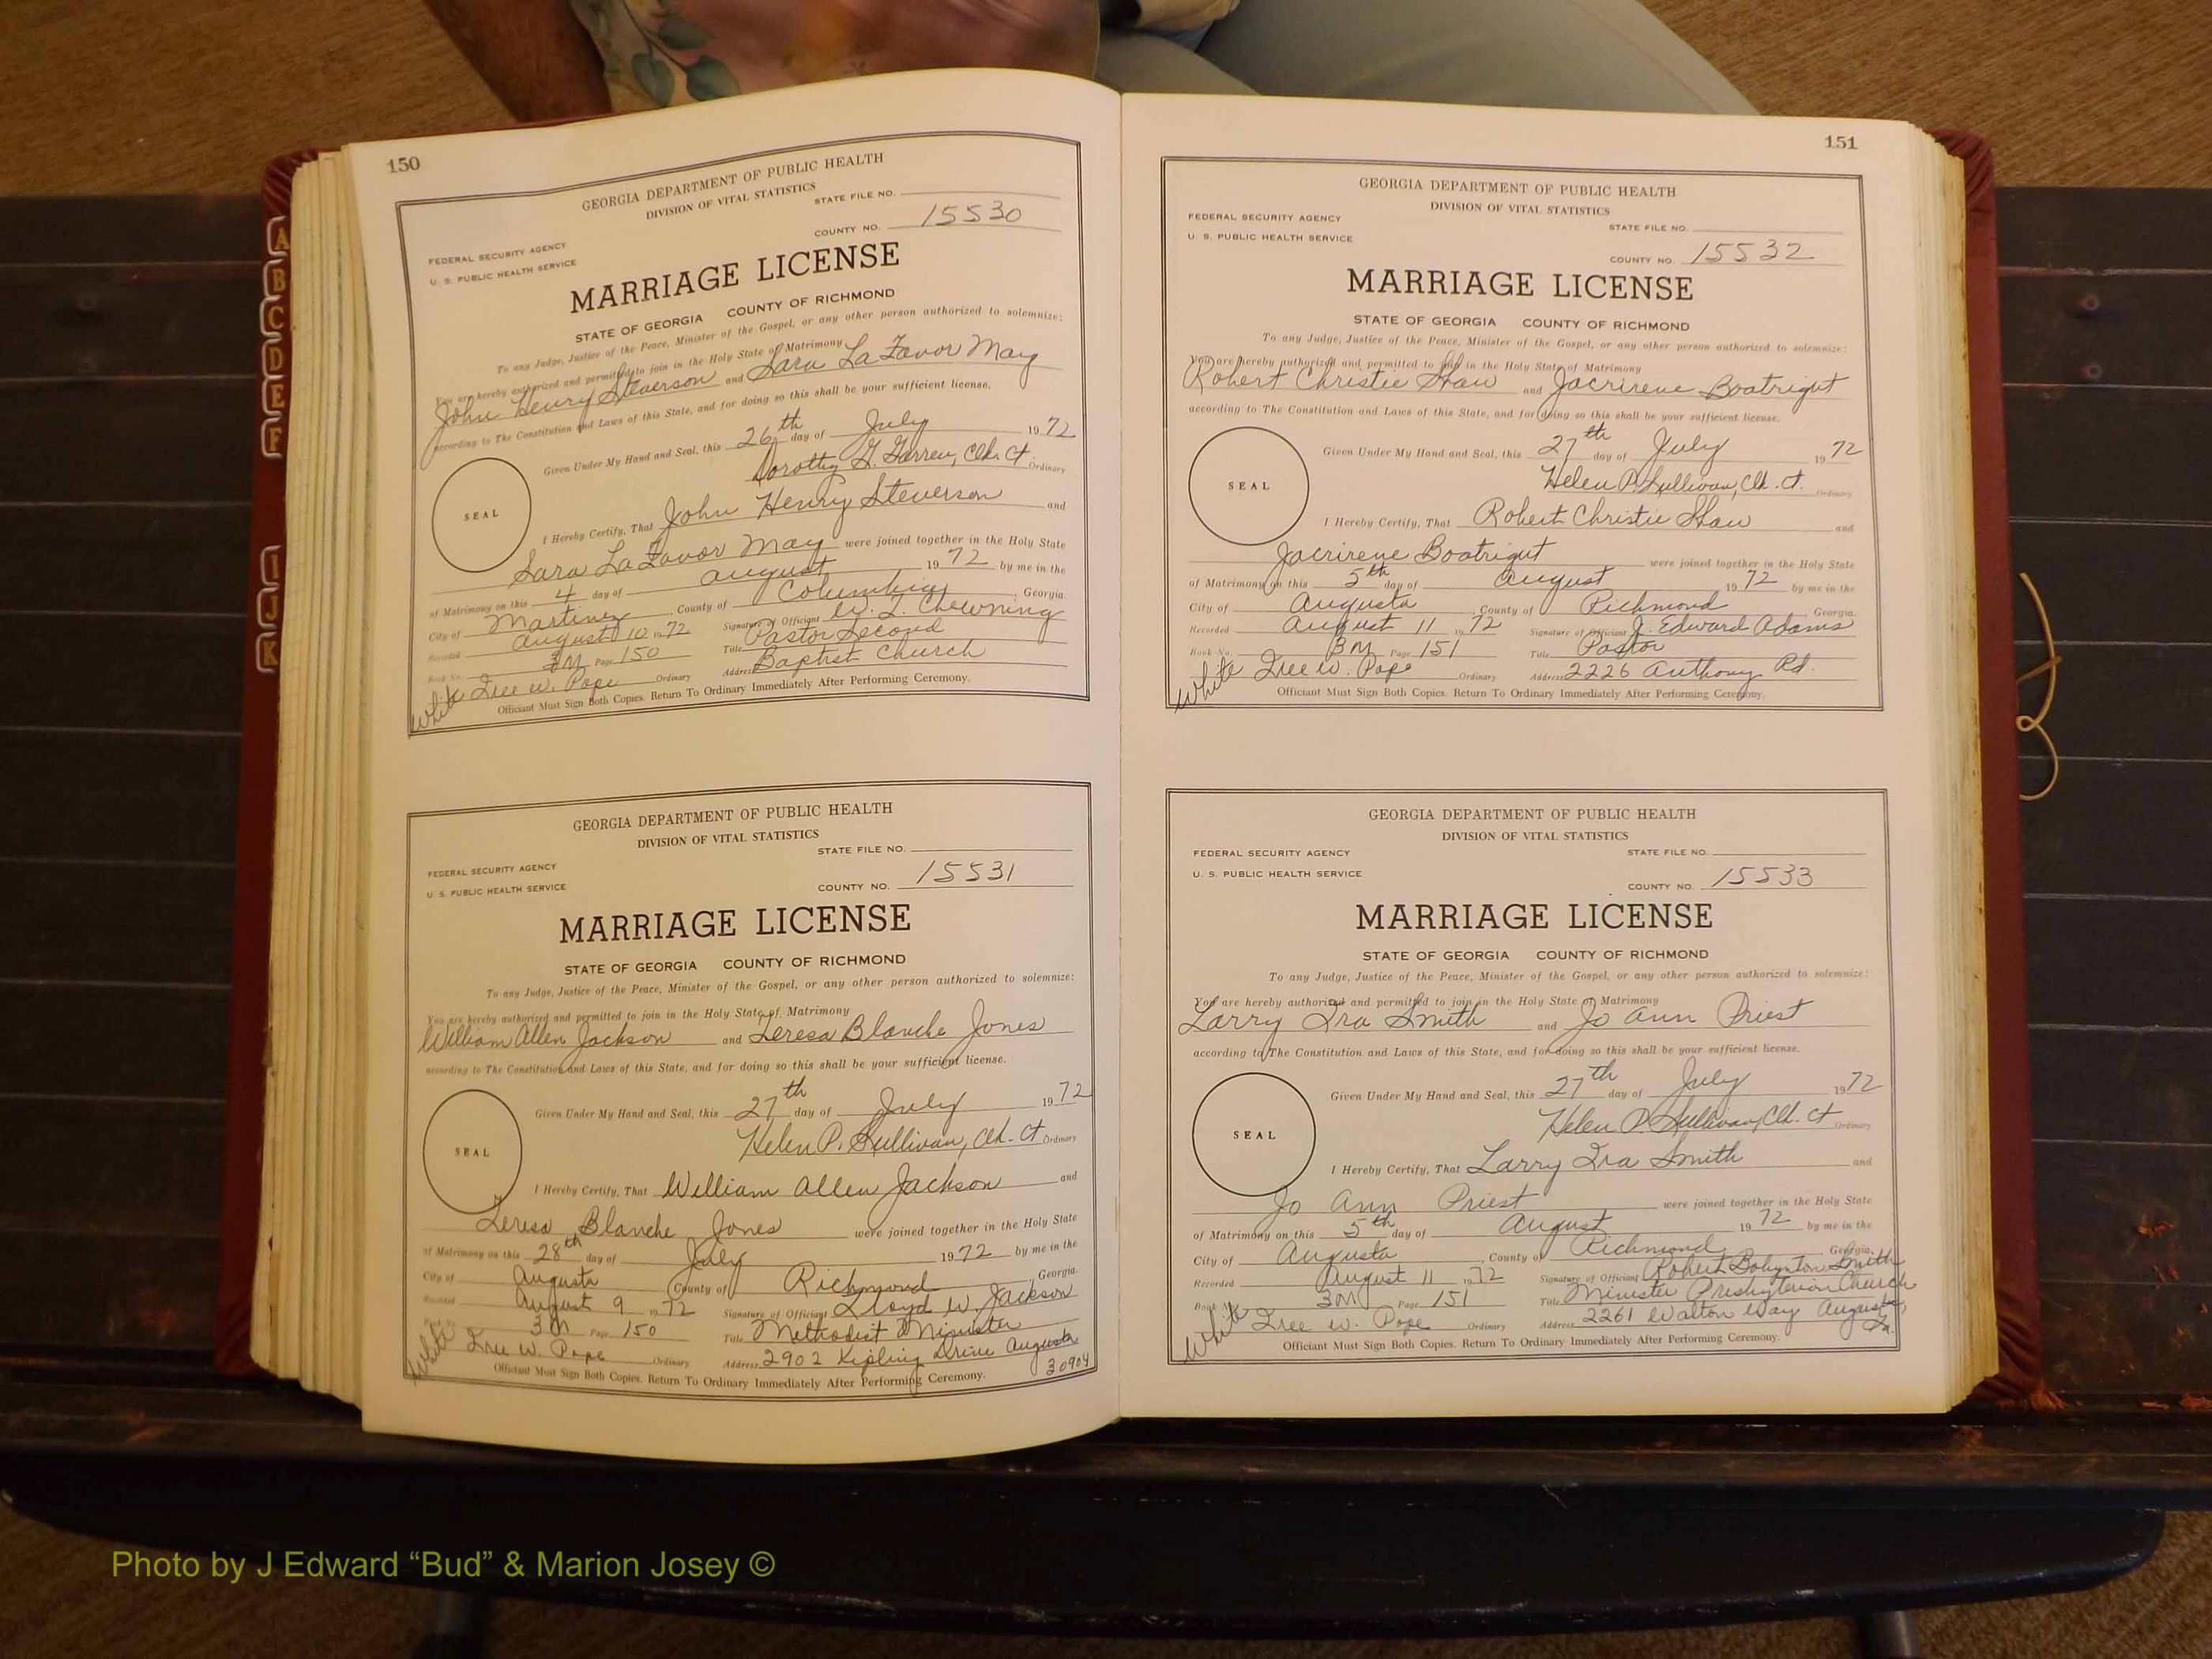 A
B
C
D
E
F
I
J
K
150
GEORGIA DEPARTMENT OF PUBLIC HEALTH
DIVISION OF VITAL STATISTICS
STATE FILE NO.
COUNTY NO. 15530
FEDERAL SECURITY AGENCY
U. S. PUBLIC HEALTH SERVICE
MARRIAGE LICENSE
STATE OF GEORGIA COUNTY OF RICHMOND
To any Judge, Justice of the Peace, Minister of the Gospel, or any other person authorized to solemnize:
You are hereby authorized and permitted to join in the Holy State of Matrimony
John Henry Steverson and Sara La Favor May
according to The Constitution and Laws of this State, and for doing so this shall be your sufficient license.
Given Under My Hand and Seal, this 26th day of July 1972
Dorothy Clk. Ct. Ordinary
SEAL
I Hereby Certify, That John Henry Steverson and
Sara La Favor May were joined together in the Holy State
of Matrimony on this 4 day of August 1972 by me in the
City of Martinez, County of Columbia, Georgia.
Recorded August 10 1972 Signature of Officiant W. I. Chewning
Book No. 3M Page 150 Title Pastor Second
White W. Pope Ordinary Address Baptist Church
Officiant Must Sign Both Copies. Return To Ordinary Immediately After Performing Ceremony.
GEORGIA DEPARTMENT OF PUBLIC HEALTH
DIVISION OF VITAL STATISTICS
STATE FILE NO.
FEDERAL SECURITY AGENCY
U. S. PUBLIC HEALTH SERVICE
COUNTY NO. 15531
MARRIAGE LICENSE
STATE OF GEORGIA COUNTY OF RICHMOND
To any Judge, Justice of the Peace, Minister of the Gospel, or any other person authorized to solemnize:
You are hereby authorized and permitted to join in the Holy State of Matrimony
William Allen Jackson and Teresa Blanche Jones
according to The Constitution and Laws of this State, and for doing so this shall be your sufficient license.
Given Under My Hand and Seal, this 27th day of July 1972
Helen P. Sullivan, Clk. Ct Ordinary
SEAL
I Hereby Certify, That William Allen Jackson and
Teresa Blanche Jones were joined together in the Holy State
of Matrimony on this 28th day of July 1972 by me in the
City of Augusta County of Richmond, Georgia.
Recorded August 9 1972 Signature of Officiant Lloyd W. Jackson
Book No. 3M Page 150 Title Methodist Minister
White W. Pope Ordinary Address 2902 Kipling Drive Augusta
30904
Officiant Must Sign Both Copies. Return To Ordinary Immediately After Performing Ceremony.
151
GEORGIA DEPARTMENT OF PUBLIC HEALTH
DIVISION OF VITAL STATISTICS
FEDERAL SECURITY AGENCY
U. S. PUBLIC HEALTH SERVICE
STATE FILE NO.
COUNTY NO. 15532
MARRIAGE LICENSE
STATE OF GEORGIA COUNTY OF RICHMOND
To any Judge, Justice of the Peace, Minister of the Gospel, or any other person authorized to solemnize:
You are hereby authorized and permitted to join in the Holy State of Matrimony
Robert Christie Shaw and Jacrirene Boatright
according to The Constitution and Laws of this State, and for doing so this shall be your sufficient license.
Given Under My Hand and Seal, this 27th day of July 1972
Helen P. Sullivan, Clk. Ct. Ordinary
SEAL
I Hereby Certify, That Robert Christie Shaw and
Jacrirene Boatright were joined together in the Holy State
of Matrimony on this 5th day of August 1972 by me in the
City of Augusta, County of Richmond, Georgia.
Recorded August 11 1972 Signature of Officiant J. Edward Adams
Book No. 3M Page 151 Title Pastor
White W. Pope Ordinary Address 2226 Anthony Rd.
Officiant Must Sign Both Copies. Return To Ordinary Immediately After Performing Ceremony.
GEORGIA DEPARTMENT OF PUBLIC HEALTH
DIVISION OF VITAL STATISTICS
FEDERAL SECURITY AGENCY
U. S. PUBLIC HEALTH SERVICE
STATE FILE NO.
COUNTY NO. 15533
MARRIAGE LICENSE
STATE OF GEORGIA COUNTY OF RICHMOND
To any Judge, Justice of the Peace, Minister of the Gospel, or any other person authorized to solemnize:
You are hereby authorized and permitted to join in the Holy State of Matrimony
Larry Ira Smith and Jo Ann Priest
according to The Constitution and Laws of this State, and for doing so this shall be your sufficient license.
Given Under My Hand and Seal, this 27th day of July 1972
Helen P. Sullivan, Clk. Ct Ordinary
SEAL
I Hereby Certify, That Larry Ira Smith and
Jo Ann Priest were joined together in the Holy State
of Matrimony on this 5th day of August 1972 by me in the
City of Augusta, County of Richmond, Georgia.
Recorded August 11 1972 Signature of Officiant Robert Smith
Book No. 3M Page 151 Title Minister Presbyterian Church
White W. Pope Ordinary Address 2261 Walton Way Augusta, Ga.
Officiant Must Sign Both Copies. Return To Ordinary Immediately After Performing Ceremony.
Photo by J Edward “Bud” & Marion Josey ©